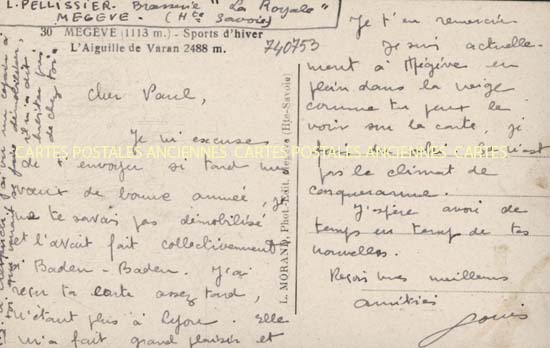 L. PELLISSIER. Brasserie "La Royale"
MEGÈVE. (Hte Savoie)
30 MEGÈVE (1113 m.) - Sports d'hiver
L'Aiguille de Varan 2488 m.
740753
Cher Paul,
Je m'excuse
de t'envoyer si tard mes
vœux de bonne année, je
ne te savais pas démobilisé
et l'avait fait collectivement
à Baden-Baden. J'ai
reçu ta carte assez tard,
n'étant plus à Lyon. Elle
m'a fait grand plaisir et
Je t'en remercie
Je suis actuelle-
ment à Mégève en
plein dans la neige
comme tu peux le
voir sur la carte, j'y
fais du ski. Ce n'est
pas le climat de
Carqueiranne.
J'espère avoir de
temps en temps de tes
nouvelles.
Reçois mes meilleures
amitiés
Louis
L. MORAND, Phot.-Edit.
(Hte-Savoie)
CARTES POSTALES ANCIENNES CARTES POSTALES ANCIENNES CARTES POSTALES ANCIENNES